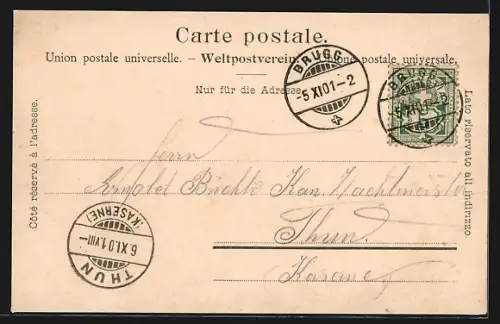 Carte postale.
Union postale universelle. – Weltpostverein. – Unione postale universale.
Nur für die Adresse.
BRUGG
-5 XI 01-2
BRUGG
-5 XI 01-2
Côté réservé à l'adresse.
Lato riservato all indirizzo.
Herrn
Arnold Büchli Kan. Wachtmeister
Thun.
Kaserne.
THUN
(KASERNE)
6.XI.01.VIII-